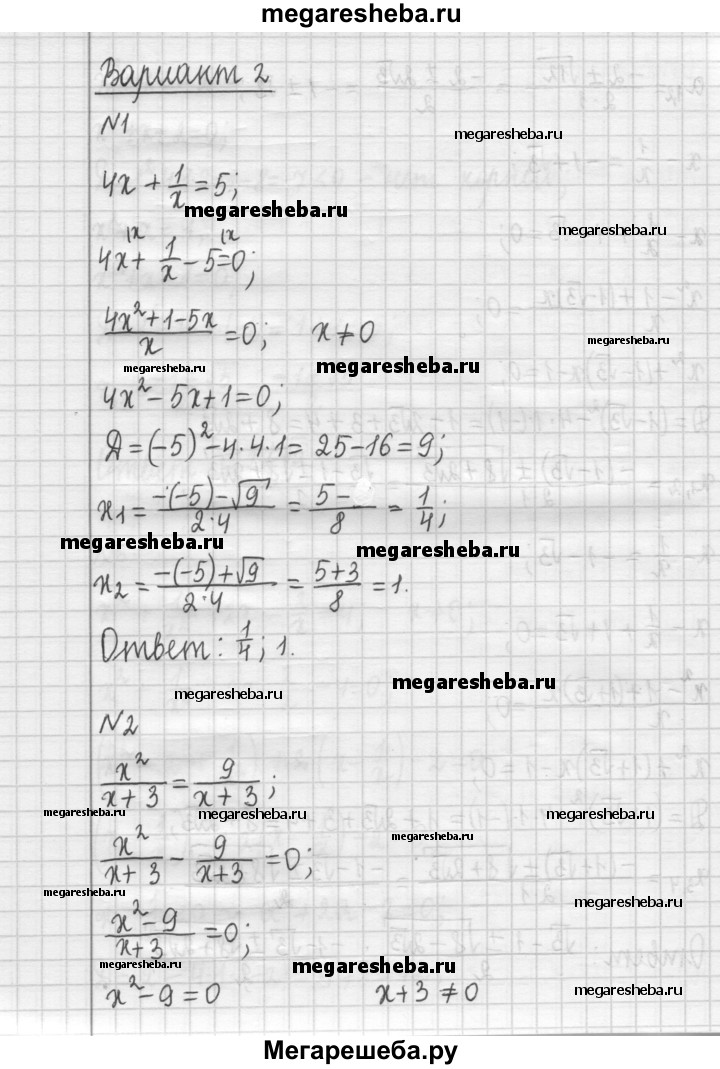 megaresheba.ru
Вариант 2
megaresheba.ru
N1
4x + 1/x = 5;
megaresheba.ru
megaresheba.ru
|x |x
4x + 1/x - 5 = 0;
(4x² + 1 - 5x)/x = 0; x ≠ 0
megaresheba.ru
megaresheba.ru
megaresheba.ru
4x² - 5x + 1 = 0;
Д = (-5)² - 4·4·1 = 25 - 16 = 9;
x₁ = (-(-5) - √9)/(2·4) = (5 - )/8 = 1/4;
megaresheba.ru
megaresheba.ru
x₂ = (-(-5) + √9)/(2·4) = (5+3)/8 = 1.
Ответ: 1/4; 1.
megaresheba.ru
megaresheba.ru
N2
x²/(x+3) = 9/(x+3);
megaresheba.ru
megaresheba.ru
megaresheba.ru
megaresheba.ru
x²/(x+3) - 9/(x+3) = 0;
megaresheba.ru
megaresheba.ru
(x² - 9)/(x+3) = 0;
megaresheba.ru
megaresheba.ru
x² - 9 = 0 x + 3 ≠ 0
megaresheba.ru
Мегарешеба.ру